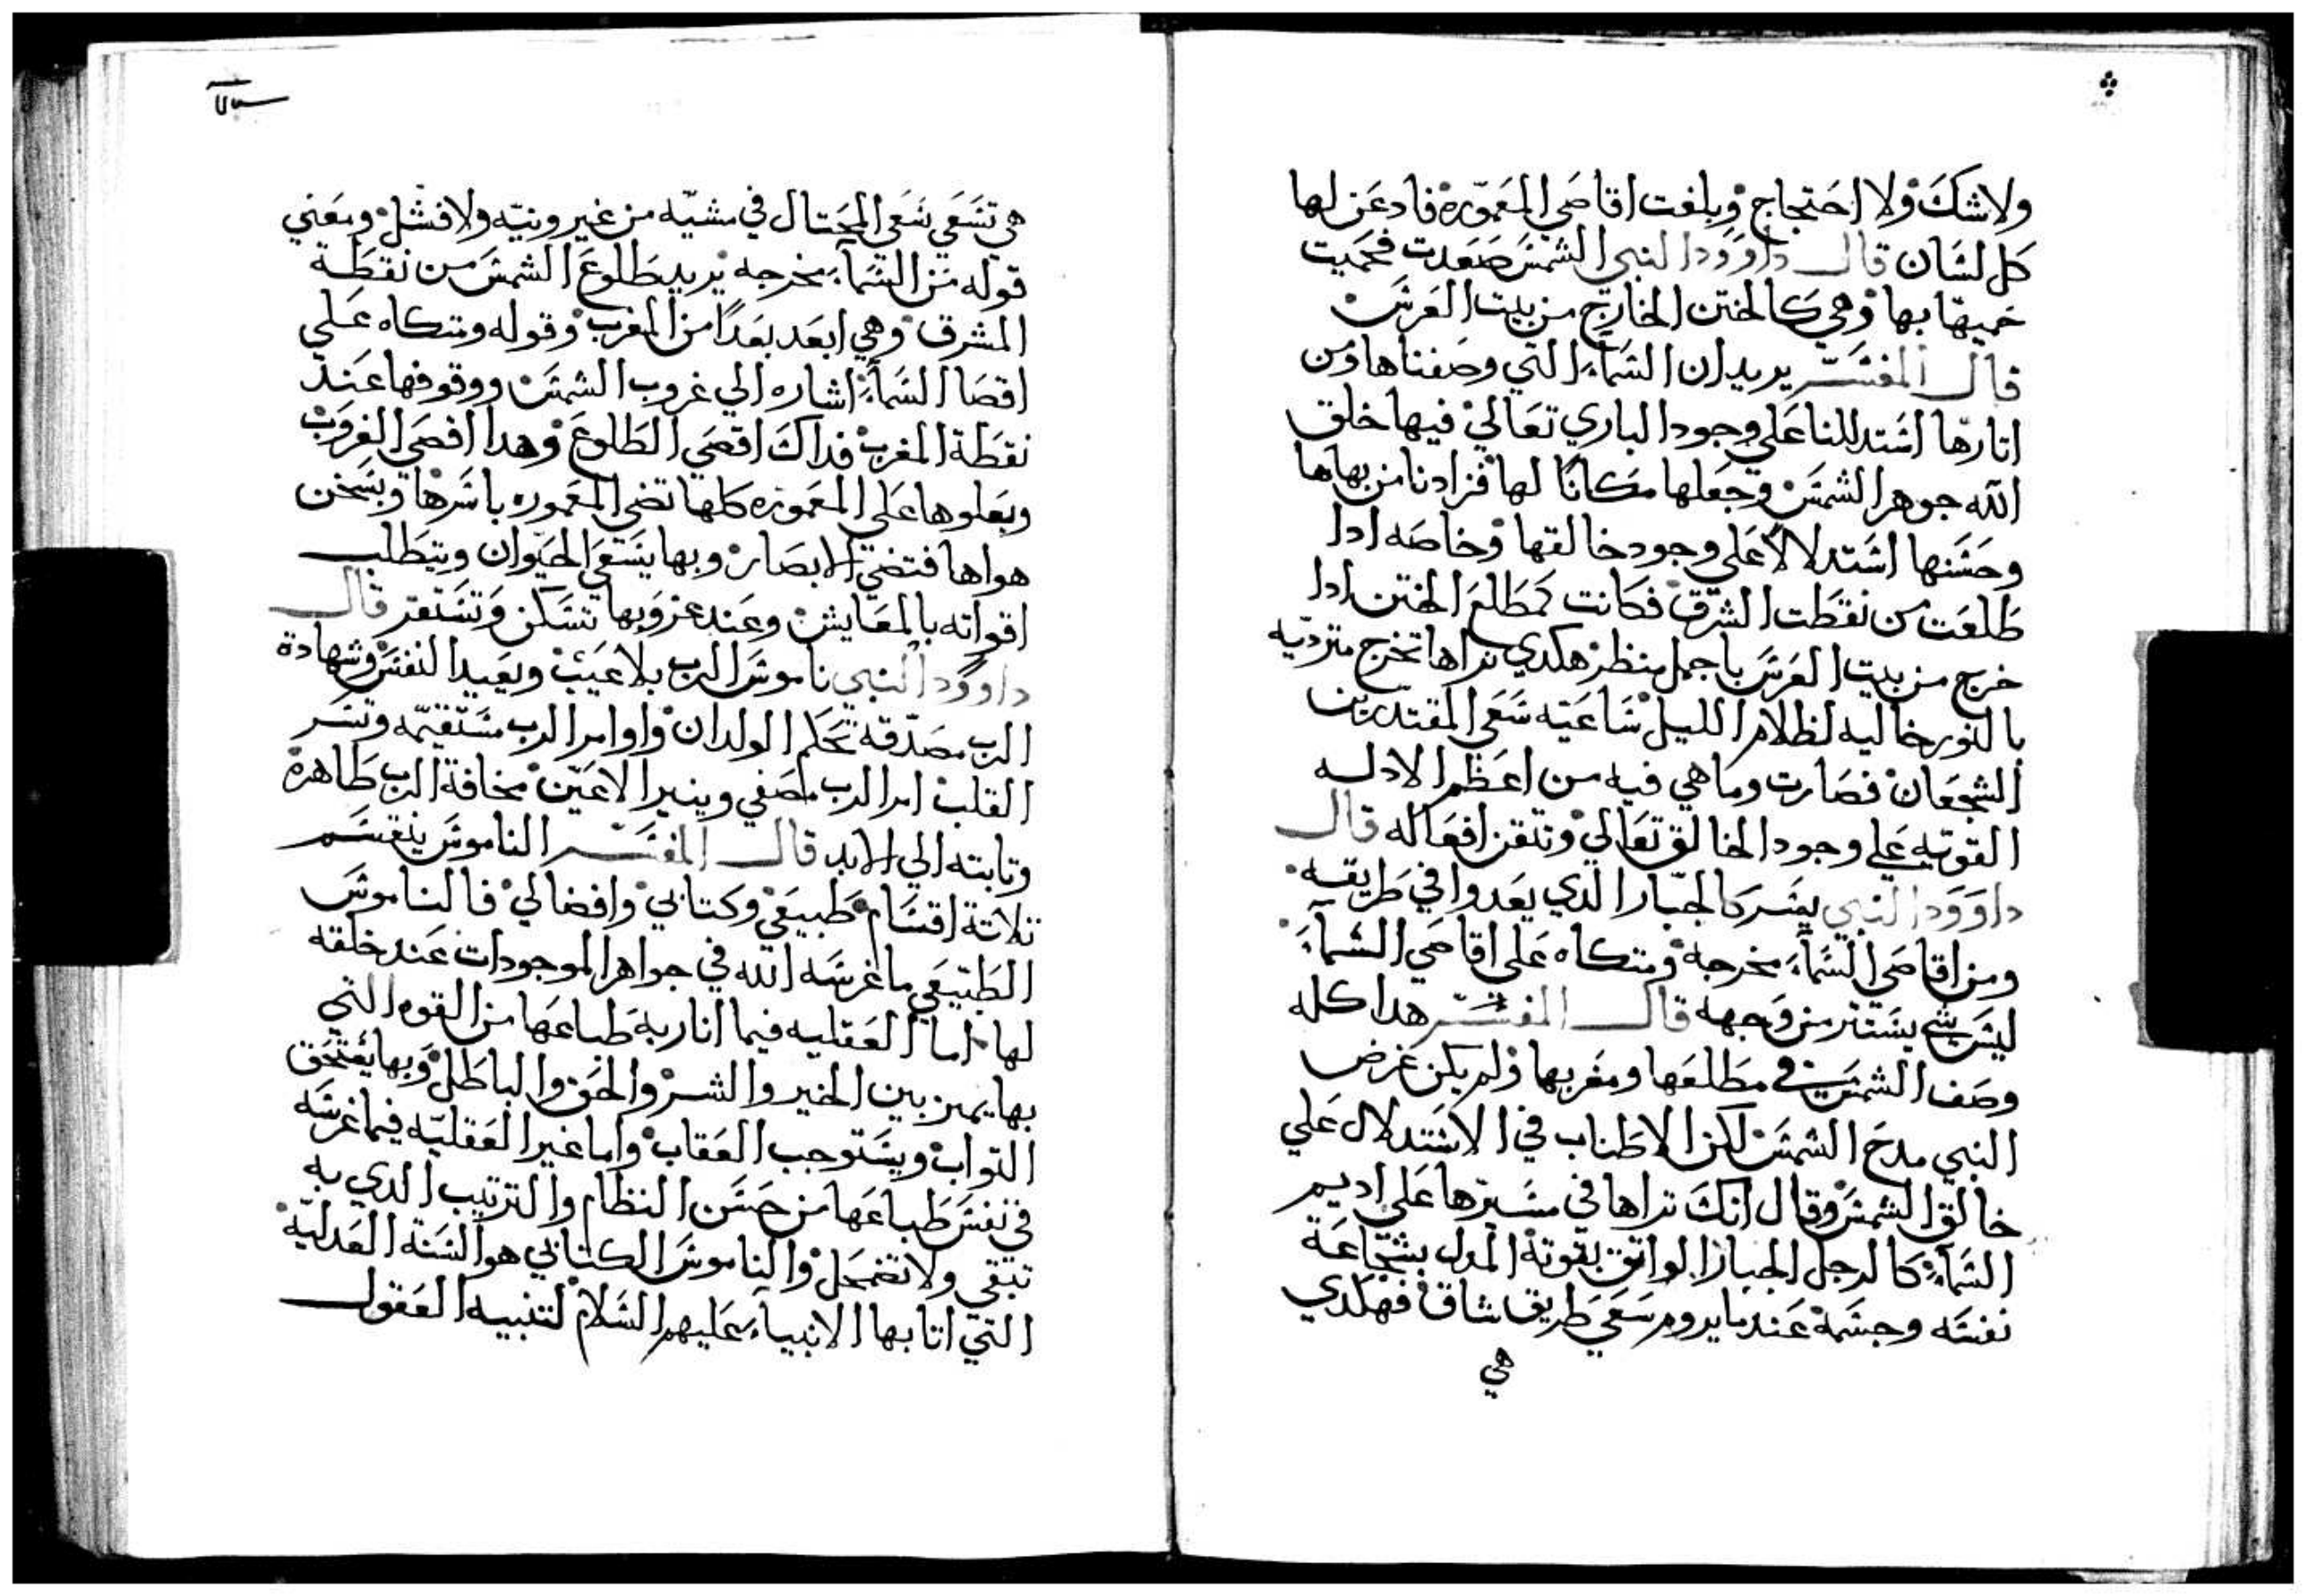 ولا شك ولا احتجاج وبلغت اقاصي المعموره فادعن لها
كل لسان قال داوود النبي الشمس صعدت فحميت
حميها بها وهي كالختن الخارج من بيت العرس
قال المفسر يريد ان السماء التي وصفناها ومن
اتارها استدللنا علي وجود الباري تعالي فيها خلق
الله جوهر الشمس وجعلها مكانا لها فزادنا من بهاها
وحسنها استدلالا علي وجود خالقها وخاصه ادا
طلعت من نقطت الشرق فكانت كمطلع الختن ادا
خرج من بيت العرس باجمل منظر هكدي تراها تخرج مترديه
بالنور خاليه لظلام الليل ساعيه سعي المقتدرين
الشجعان فصارت وما هي فيه من اعظم الادله
القويه علي وجود الخالق تعالي وتتقن افعاله قال
داوود النبي يسر كالجبار الدي يعدوا في طريقه
ومن اقاصي السماء مخرجه ومتكاه علي اقاصي السماء
ليس شي يستتر من وجهه قال المفسر هدا كله
وصف الشمس في مطلعها ومغربها ولم يكن غرض
النبي مدح الشمس لكن الاطناب في الاستدلال علي
خالق الشمس وقال انك تراها في مسيرها علي اديم
السماء كالرجل الجبار الواتق بقوته المدل بشجاعة
نفسه وجسمه عند ما يروم سعي طريق شاق فهكدي
هي
هي تسعي سعي المحتال في مشيه من غير ونيه ولا فشل ومعني
قوله من السماء مخرجه يريد طلوع الشمس من نقطة
المشرق وهي ابعد بعدا من المغرب وقوله ومتكاه علي
اقصا السماء اشاره الي غروب الشمس ووقوفها عند
نقطة المغرب فداك اقصي الطلوع وهدا اقصي الغروب
وبعلوها علي المعموره كلها تضي المعموره باسرها ويسخن
هواها فتضي الابصار وبها يسعي الحيوان ويتطلب
اقواته بالمعايش وعند غروبها تسكن وتستقر قال
داوود النبي ناموس الرب بلا عيب ويعيد النفس وشهادة
الرب مصدقه تحكم الولدان واوامر الرب مستقيمه وتسر
القلب امر الرب مصفي وينير الاعين مخافة الرب طاهره
وتابته الي الابد قال المفسر الناموس ينقسم
تلاتة اقسام طبيعي وكتابي وافضالي فالناموس
الطبيعي ما غرسه الله في جواهر الموجودات عند خلقه
لها اما العقليه فيما انار به طباعها من القوه التي
بها يميز بين الخير والشر والحق والباطل وبها يستحق
التواب ويستوجب العقاب واما غير العقليه فيما غرسه
في نفس طباعها من حسن النظام والترتيب الدي به
تبقي ولا تضمحل والناموس الكتابي هو السنة العدليه
التي اتا بها الانبياء عليهم السلام لتنبيه العقول